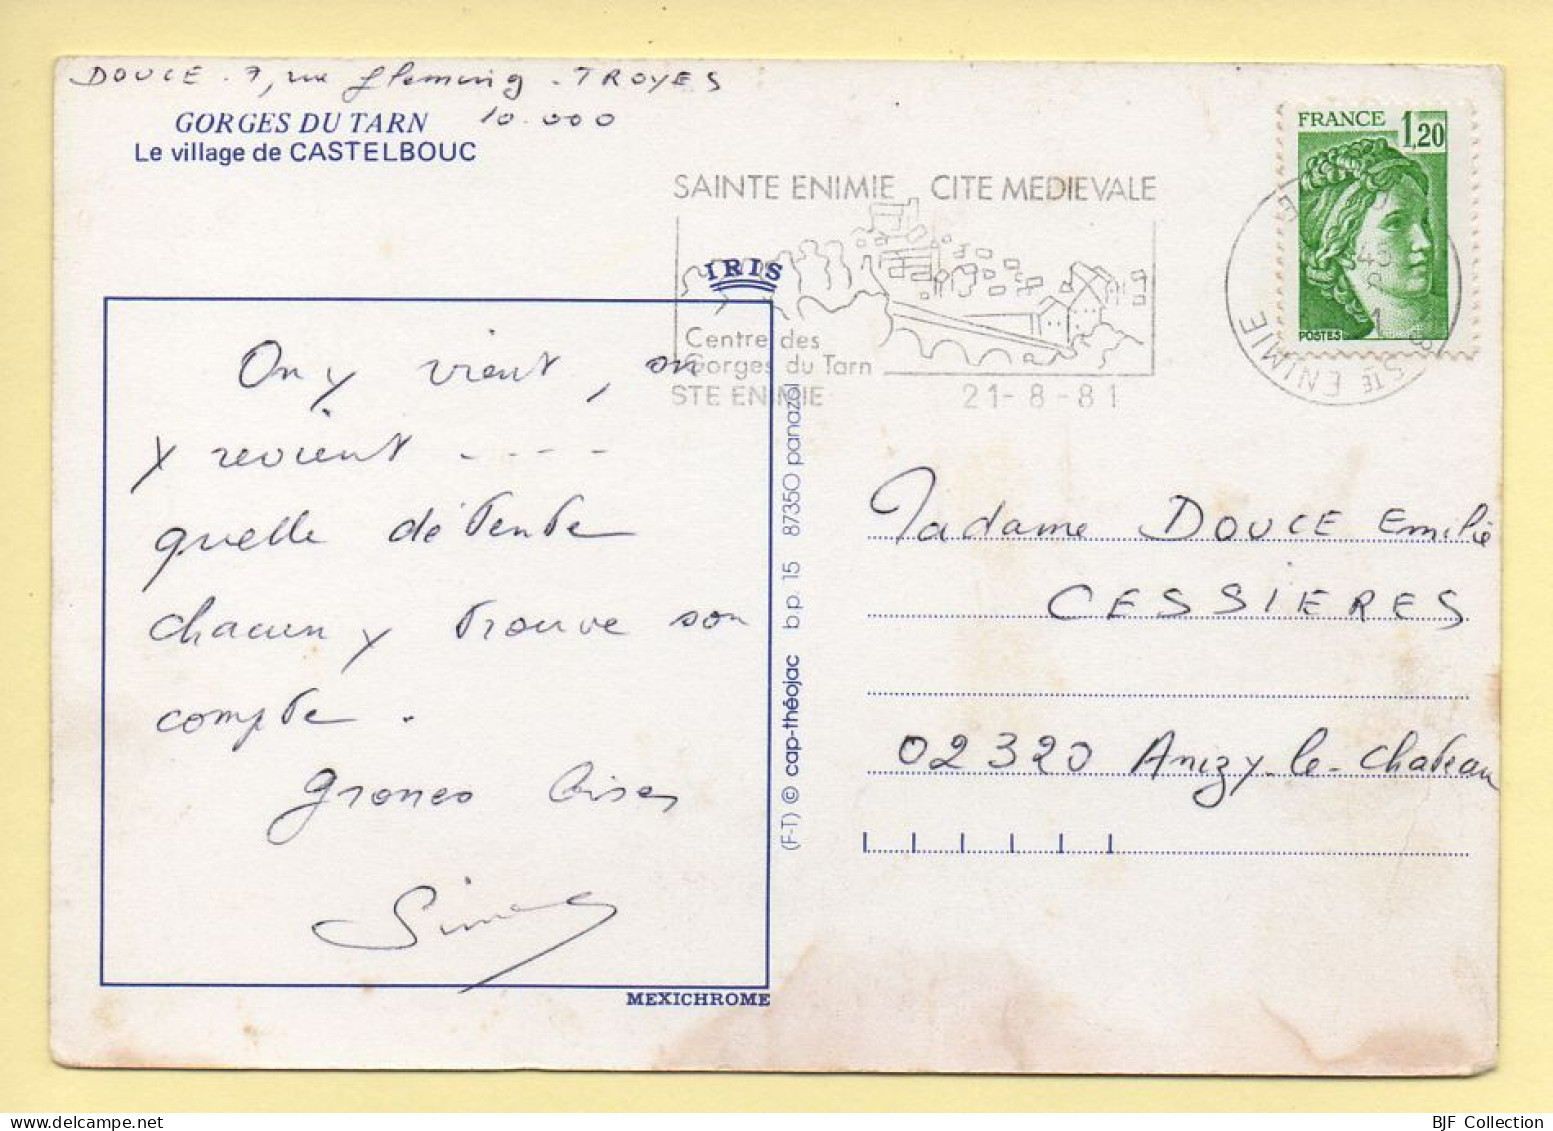 DOUCE - 7, rue Fleming - TROYES
10.000
GORGES DU TARN
Le village de CASTELBOUC
SAINTE ENIMIE CITE MEDIEVALE
Centre des
Gorges du Tarn
STE ENIMIE
21-8-81
STE ENIMIE
FRANCE 1,20
POSTES
IRIS
On y vient, on
y revient ....
quelle détente
chacun y trouve son
compte.
grosses bises
MEXICHROME
(F-T) © cap-théojac b.p. 15 87350 panazol
Madame DOUCE Emilie
CESSIERES
02320 Anizy-le-Chateau
BJF Collection